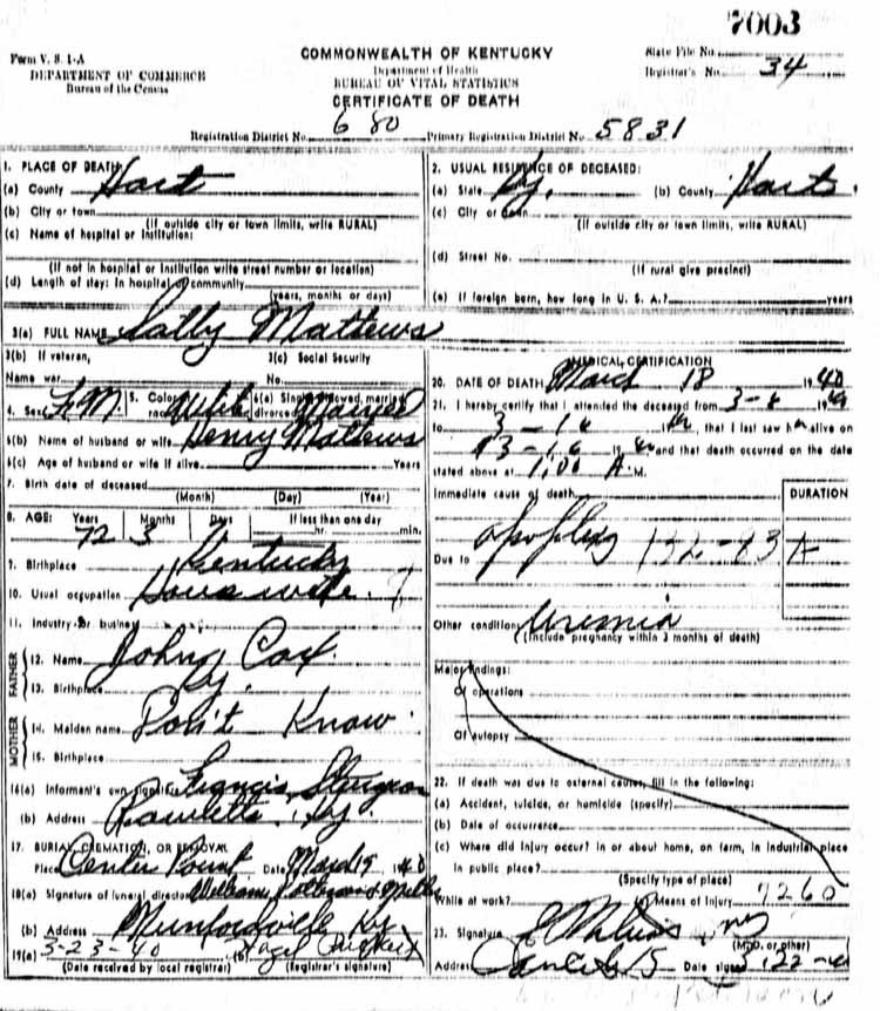 7003
Form V. S. 1-A
DEPARTMENT OF COMMERCE
Bureau of the Census
COMMONWEALTH OF KENTUCKY
Department of Health
BUREAU OF VITAL STATISTICS
CERTIFICATE OF DEATH
State File No.
Registrar's No. 34
Registration District No. 680 Primary Registration District No. 5831
1. PLACE OF DEATH:
(a) County Hart
(b) City or town
(If outside city or town limits, write RURAL)
(c) Name of hospital or Institution:
(If not in hospital or Institution write street number or location)
(d) Length of stay: In hospital or community
(years, months or days)
2. USUAL RESIDENCE OF DECEASED:
(a) State Ky. (b) County Hart
(c) City or town
(If outside city or town limits, write RURAL)
(d) Street No.
(If rural give precinct)
(e) If foreign born, how long in U. S. A.? years
3(a) FULL NAME Sally Mathews
3(b) If veteran, 3(c) Social Security
Name war No.
4. Sex F.M. 5. Color or race White 6(a) Single, widowed, married, divorced Married
6(b) Name of husband or wife Henry Mathews
6(c) Age of husband or wife if alive Years
7. Birth date of deceased
(Month) (Day) (Year)
8. AGE: Years Months Days If less than one day
72 3 hr. min.
9. Birthplace Kentucky
10. Usual occupation House wife.
11. Industry or business
FATHER
12. Name John Cox.
13. Birthplace Ky.
MOTHER
14. Maiden name Don't Know.
15. Birthplace
16(a) Informent's own signature Francis Sturgeon
(b) Address Rowletts, Ky.
17. BURIAL, CREMATION, OR REMOVAL
Place Center Point Date Mar 19, 1940
18(a) Signature of funeral director
(b) Address Munfordville Ky
19(a) 3-23-40 (b)
(Date received by local registrar) (Registrar's signature)
MEDICAL CERTIFICATION
20. DATE OF DEATH March 18 1940
21. I hereby certify that I attended the deceased from 3-
to 3-16, that I last saw h alive on
3-16 and that death occurred on the date
stated above at 1:00 A.M.
Immediate cause of death DURATION
Due to apoplexy
Other conditions Uremia
(Include pregnancy within 3 months of death)
Major findings:
Of operations
Of autopsy
22. If death was due to external causes, fill in the following:
(a) Accident, suicide, or homicide (specify)
(b) Date of occurrence
(c) Where did injury occur? In or about home, on farm, in industrial place
in public place?
(Specify type of place)
While at work? Means of Injury 7260
23. Signature
(M.D. or other)
Address Date signed 3-22-40